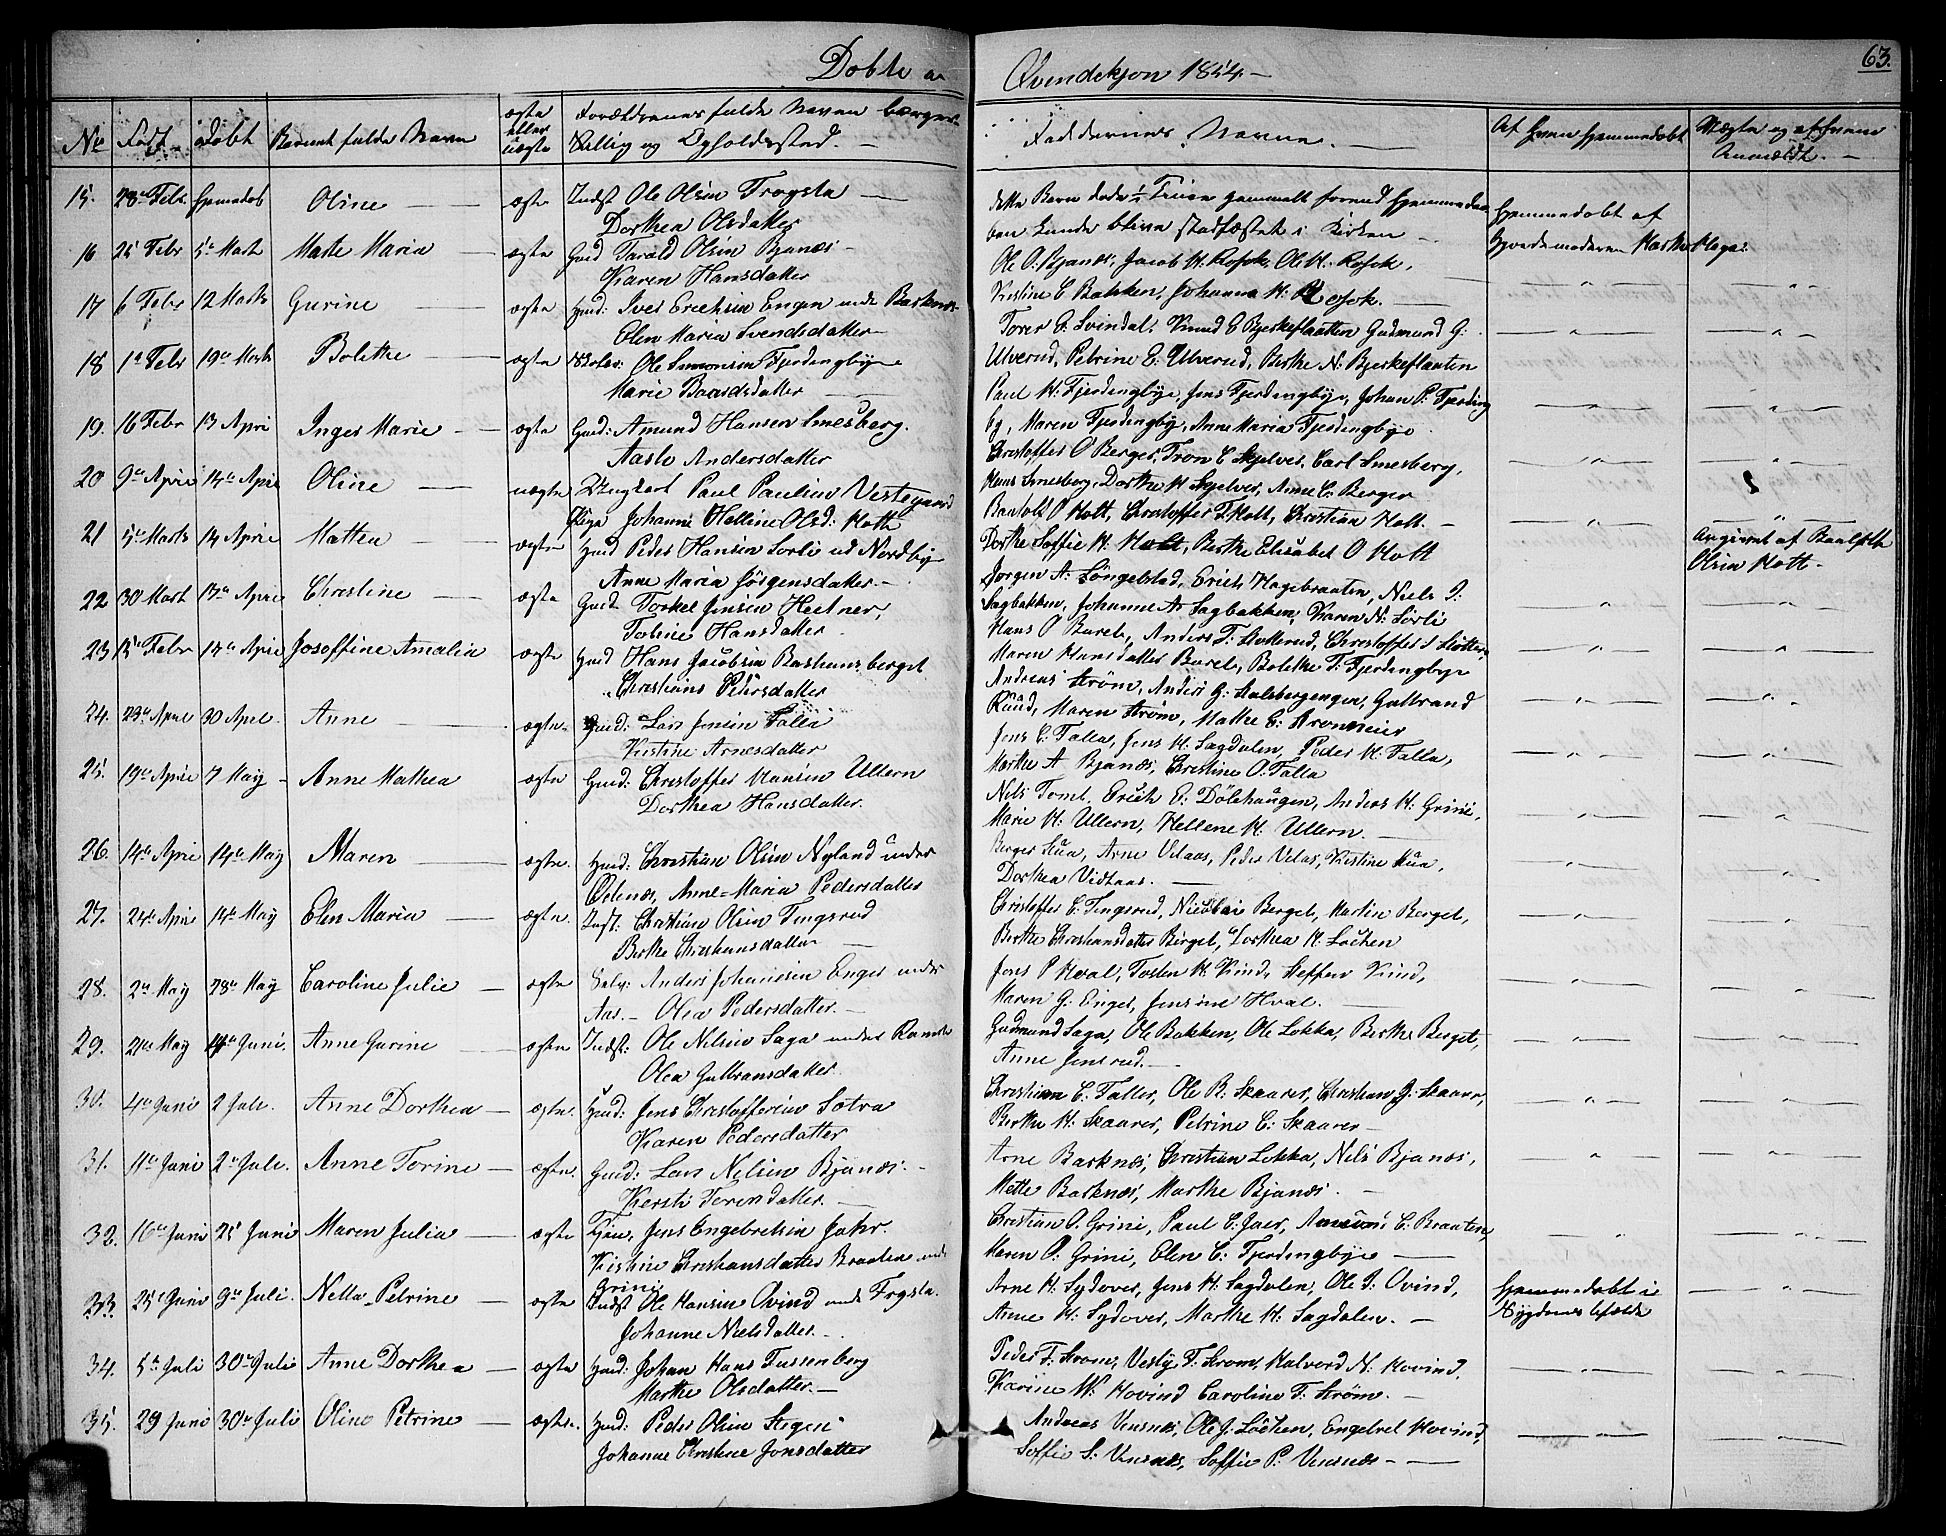 63.
Døbte a Qvindekjøn 1854.
No Født døbt Barnets fulde Navn ægte eller uægte Forældrenes fulde Navne borger Stillig og Opholdssted.
Faddernes Navne. Af hvem hjemmedøbt Uægte og af hvem Anmeldt.
15. 28de Febr hjemmedøb Oline ægte Indst Ole Olsen Trogsta
Dorthea Olsdatter
dette Barn døde 1/2 Time gammelt forend hjemmedaa
ben kunde blive stadfæstet i Kirken
hjemmedøbt af
Gjordemoderen Marthe Haga
16 25 Febr 5te Marts Marte Maria ægte Gmd Tarald Olsen Bjanæs
Karen Hansdatter
Ole O. Bjanæs, Jacob H. Kosok, Ole H. Kosok,
Kirstine E Bakken, Johanne H: Kosok.
17 6 Febr 12 Marts Gurine ægte Hmd: Iver Erichsen Engen unde Barknæs
Elen Maria Svendsdatter
Torer E. Svindal, Knud E Bjerkeflaatten Gudmund G:
Ulverud, Petrine E: Ulverud, Berthe N: Bjerkeflaaten
18 1te Febr 19de Marts Bolethe ægte Ole Simonsen Fjerdingbye
Marie Baardsdatter
Paul H. Fjerdingbye, Jens Fjerdingbye, Johan P. Fjerding
by, Maren Fjerdingby, Anne Maria Fjerdingbye
19. 16 Febr 13 April Inger Marie ægte Gmd: Amund Hansen Smesberg.
Aaste Andersdatter
Christoffer O Berger, Tron C Skjelver, Carl Smesberg,
Hans Smesberg, Dorthe H Skjelver, Anne C. Berger
20 9de April 14de April Oline uægte Ungkarl Paul Paulsen Vestegaard
Pige Johanne Helline Olsd: Holt
Baatolf O Holt, Christoffer T. Holt, Christian Holt.
Dorthe Soffie H. Holt, Berthe Elisabet O Holt
Angivet af Baatolf
Olsen Holt
21 5te Marts 14 April Mathea ægte Hmd Peder Hansen Sorli ud Nordby
Anne Maria Jörgensdatter
Jorgen A. Löngelstad, Erich Hagebraaten, Niels J:
Sagbakken, Johanne A. Sagbakken, Karen N. Sörli
22 30 Mart 17de April Christine ægte Gmd Torkel Jensen Heitner,
Tobine Hansdatter
Hans O Burel, Anders T: Slotterud, Christoffer S Slotter
Maren Hansdatter Burel, Bolethe T: Fjerdingbye
23 15de Febr 17de April Josoffine Amalia ægte Hmd Hans Jacobsen Bashusberget
Christians Pedersdatter
Andreas Ström, Anders G: Aalsbergengen, Gulbrand
Ruud, Maren Ström, Mathe E: Aronseier
24. 23de April 30 April. Anne ægte Gmd: Lars Jensen Falla
Kirstine Arnesdatter
Jens C: Falla, Jens H. Sagdalen, Peder H. Falla,
Marthe A Bjanæs, Christine O. Falla
25. 19de April 7 May Anne Mathea ægte Gmd: Christoffer Hansen Ullern
Dorthea Hansdatter.
Nils Tomt. Erich E: Dölehaugen, Anders H: Grini,
Marie H: Ullern, Hellene H. Ullern.
26. 14de April 14de May Maren ægte. Hmd: Christian Olsen Nyland under
Odenæs, Anne-Maria Pedersdatter
Berger Hua, Arne Velaas, Peder Velas, Kirstine Hua,
Dorthea Vidtaas.
27. 24de April 14de May Elen Maria ægte. Indst: Christian Olsen Tingsrud
Berthe Christiansdatter
Christoffer C. Tingsrud, Nicolai Berget, Martin Berget,
Berthe Christiansdatter Berget, Dorthea H. Löchen
28. 2de May 28de May Caroline Julie ægte Selv: Anders Johansen Enger under
Aas. Olea Pedersdatter.
Jens P Hval, Tosten H. Kind, Steffen Kind,
Maren G: Enger, Jensine Hval.
29. 21de May 4de Juni. Anne Gurine ægte Indst: Ole Nilsen Saga under Ramst
Olea Gulbransdatter.
Gudmund Saga, Ole Bakken, Ole Løkka, Berthe Berget,
Anne Jensrud.
30. 4de Juni 2 Juli. Anne Dorthea ægte. Hmd: Jens Christoffersen Sotra
Karen Pedersdatter
Christian C. Faller, Ole B. Skaarer, Christian J. Skaarer,
Berthe H. Skaarer, Petrine C: Skaarer
31. 11de Juni 2de Juli. Anne Torine ægte. Gmd: Lars Nilsen Bjanæs.
Kersti Torersdatter.
Arne Barknæs, Christian Løkka, Nils Bjanæs,
Mette Barknæs, Marthe Bjanæs.
32. 16de Juni 25 Juni Maren Julia ægte Tjen, Jens Engebretsen Jahr.
Kirstine Christiansdatter Braaten unde
Grini
Christian O. Grini, Paul C: Jaer, C: Braaten,
Maren O: Grini, Elen C: Fjerdingbye
33. 25de Juni 9de Juli. Nella Petrine ægte Indst Ole Hansen Ovind unde Frogsta.
Johanne Nielsdatter.
Arne H. Sydover, Jens H. Sagdalen, Ole J. Ovind,
Anne H. Sydover, Marthe H. Sagdalen.
hjemmedøbt i
34. 5te Juli 30de Juli Anne Dorthea ægte Hmd: Johan Hans Tussenberg
Marthe Olsdatter.
Peder T. Strøm, Vesty T. Strøm, Halvord N. Hovind,
Karine W. Hovind Caroline T. Strøm.
35. 29 Juni 30de Juli Oline Petrine ægte. Hmd: Peder Olsen Stegen
Johanne Christine Jonsdatter
Andreas Vensnæs, Ole J. Löchen, Engebret Hovind,
Soffie S. Vensnæs, Soffie P. Vensnæs